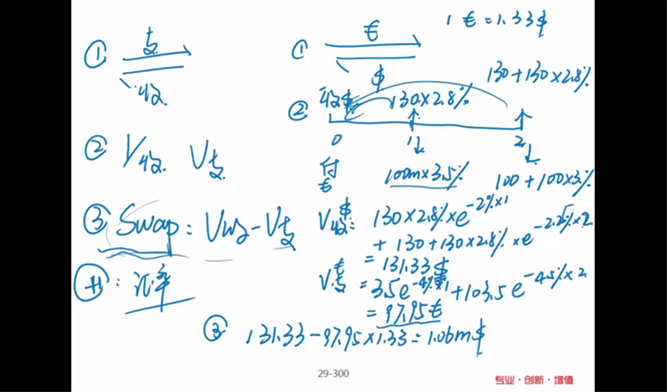 1 € = 1.33 $
① 支 收
① € $
② V收 V支
② 收$ 130×2.8% 130+130×2.8%
0 1 2
付€ 100m×3.5% 100+100×3%
③ Swap: V收-V支
V收$: 130×2.8%×e^-2%×1
+ 130+130×2.8%×e^-2.25%×2
= 131.33 $
V支€: 3.5e^-4%×1 + 103.5e^-4.5%×2
= 97.95€
H: 汇率
③ 131.33-97.95×1.33=1.06m$
29-300
专业·创新·增值